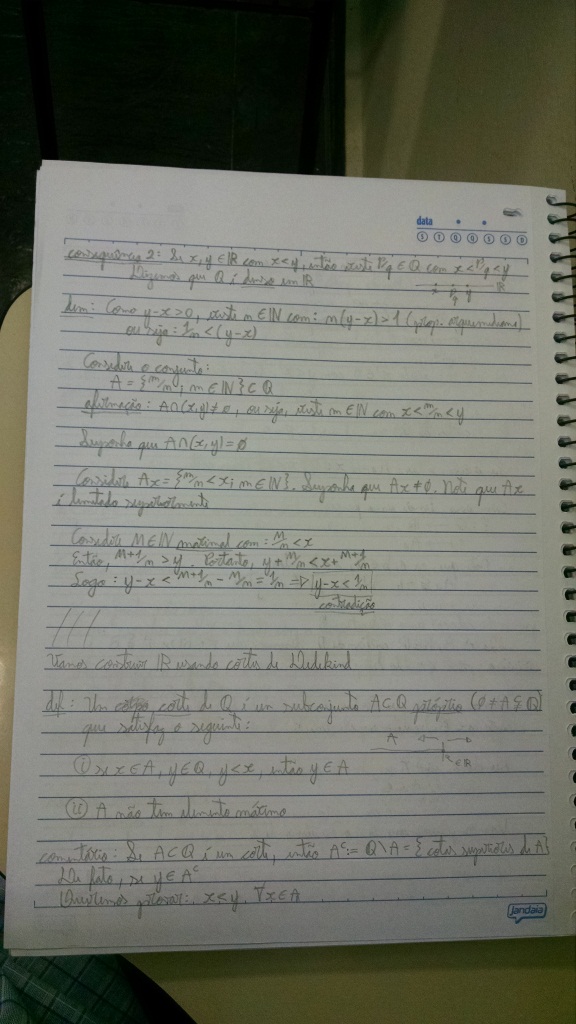 data
S T Q Q S S D
consequência 2: Se x, y ∈ ℝ com x < y, então existe p/q ∈ Q com x < p/q < y
Dizemos que Q é denso em ℝ
x p/q y ℝ
dem: Como y-x > 0, existe n ∈ ℕ com: n(y-x) > 1 (prop. arquimediana)
ou seja: 1/n < (y-x)
Considere o conjunto:
A = {m/n; m ∈ ℕ} ⊂ Q
afirmação: A∩(x,y) ≠ ∅, ou seja, existe m ∈ ℕ com x < m/n < y
Suponha que A∩(x,y) = ∅
Considere Ax = {m/n < x; m ∈ ℕ}. Suponha que Ax ≠ ∅. Note que Ax
é limitado superiormente
Considere M ∈ ℕ maximal com: M/n < x
Então, M+1/n > y. Portanto, y + M/n < x + M+1/n
Logo: y-x < M+1/n - M/n = 1/n => y-x < 1/n
contradição
///
Vamos construir ℝ usando cortes de Dedekind
def: Um corte de Q é um subconjunto A⊂Q próprio (∅ ≠ A ⊊ Q)
que satisfaz o seguinte:
A
∈ ℝ
(i) se x ∈ A, y ∈ Q, y < x, então y ∈ A
(ii) A não tem elemento máximo
comentário: Se A⊂Q é um corte, então Aᶜ := Q\A = {cotas superiores de A}
De fato, se y ∈ Aᶜ
Queremos provar: x ≤ y, ∀x ∈ A
jandaia